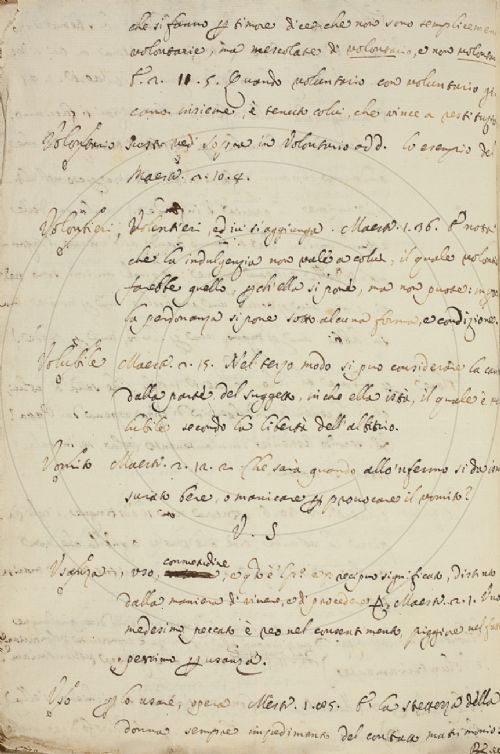 che si fanno per timore dice che non sono semplicemen
volontarie, ma mescolate di volontario, e non volontar
E 2. 11. 5. Quando volontario con voluntario gi
cano insieme, è tenuto colui, che vince a restituzio
Volontario sust. vedi sopra in Volontario add. lo esempio del
Maestr. 2. 10. 4.
Volontieri, Volentieri, ed in si aggiunga. Maestr. 1. 36. E nota
che la indulgenzia non vale a colui, il quale volonti
farebbe quello, perch'ella si pone, ma non puote:
la perdonanza si pone sotto alcuna forma, e condizione.
Volubile Maestr. 2. 15. Nel terzo modo si può considerare la
dalla parte del suggetto, in che ella istà, il quale è vo
lubile secondo la libertà dell'albitrio.
Vomito Maestr. 2. 12. 2. Che sarà quando allo'nfermo si dà
surato bere, o manicare per provocare il vomito?
V. S
Usanza, uso, consuetudine, e è preso significato, distinto
dalla maniera di vivere, e di procedere Maestr. 2. 1. Uno
medesimo peccato è reo nel consentimento, piggiore nel fatto
pessimo per usanza.
Uso per lo usare, opera Mestr. 1. 85. E la strettezza della
donna sempre impedimento del contratto matrimonio